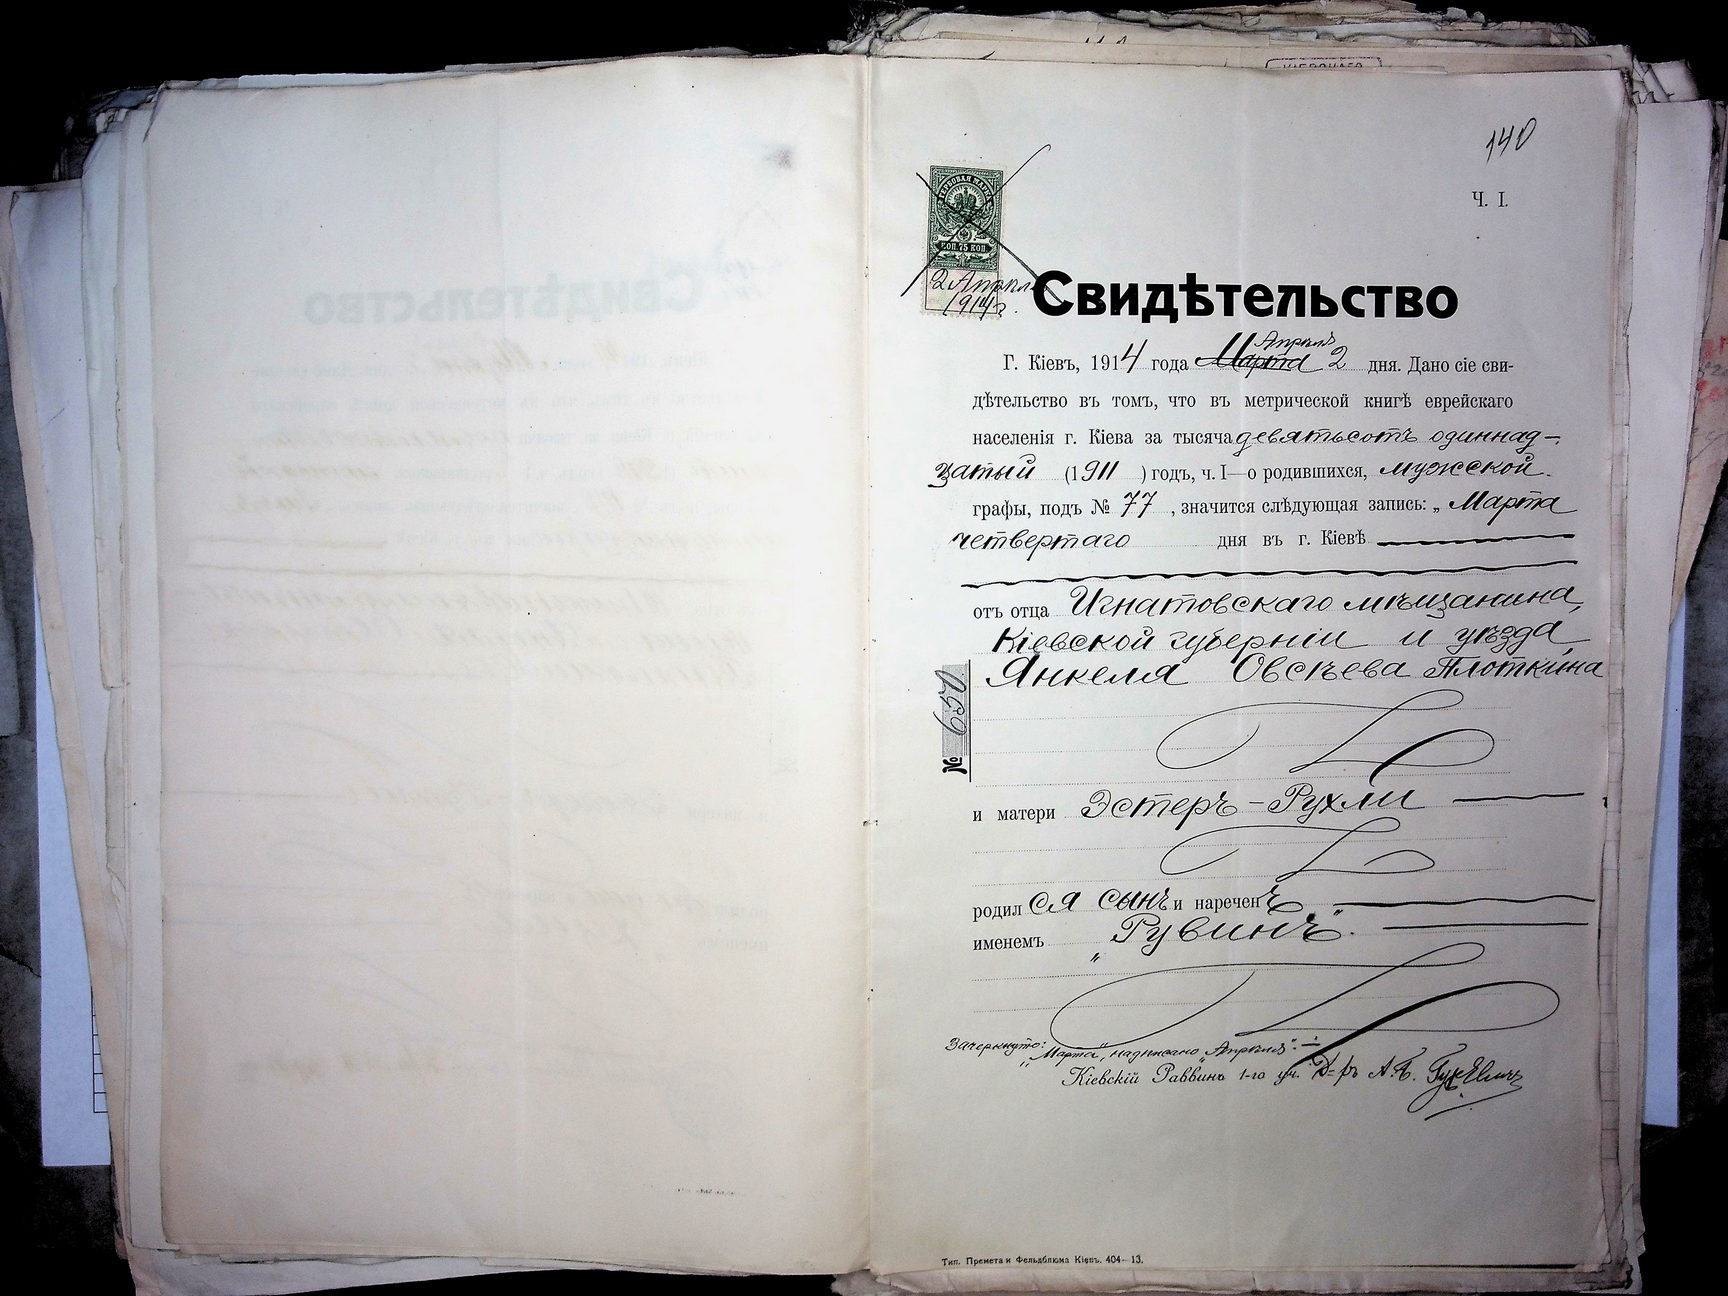 140
Ч. I.
ГЕРБОВАЯ МАРКА
КОП. 75 КОП.
2 Апрѣля
1914 г.
Свидѣтельство
Апрѣля
Г. Кіевъ, 1914 года Марта 2 дня. Дано сіе сви-
дѣтельство въ томъ, что въ метрической книгѣ еврейскаго
населенія г. Кіева за тысяча девятьсотъ одиннад-
цатый (1911) годъ, ч. I—о родившихся, мужской
графы, подъ № 77, значится слѣдующая запись: „Марта
четвертаго дня въ г. Кіевѣ
отъ отца Игнатовскаго мѣщанина,
Кіевской губерніи и уѣзда,
Янкеля Овсѣева Плоткина
№ 650
и матери Эстеръ-Рухли
родился сынъ и нареченъ
именемъ „Рувинъ".
Зачеркнуто:
„Марта", надписано „Апрѣля".
Кіевскій Раввинъ 1-го уч. Д-ръ А. Б. Гуревичъ
Тип. Премета и Фельдблюма Кіевъ. 404—13.